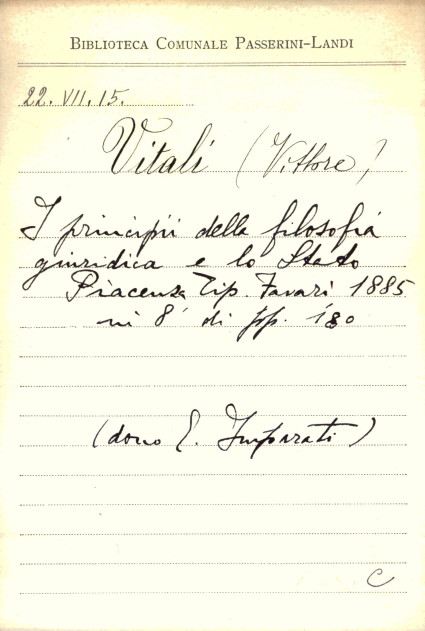 BIBLIOTECA COMUNALE PASSERINI-LANDI
22. VII. 15.
Vitali (Vittore)
I principii della filosofia
giuridica e lo Stato
Piacenza Tip. Favari 1885
in 8° di pp. 180
(dono E. Imparati)
C